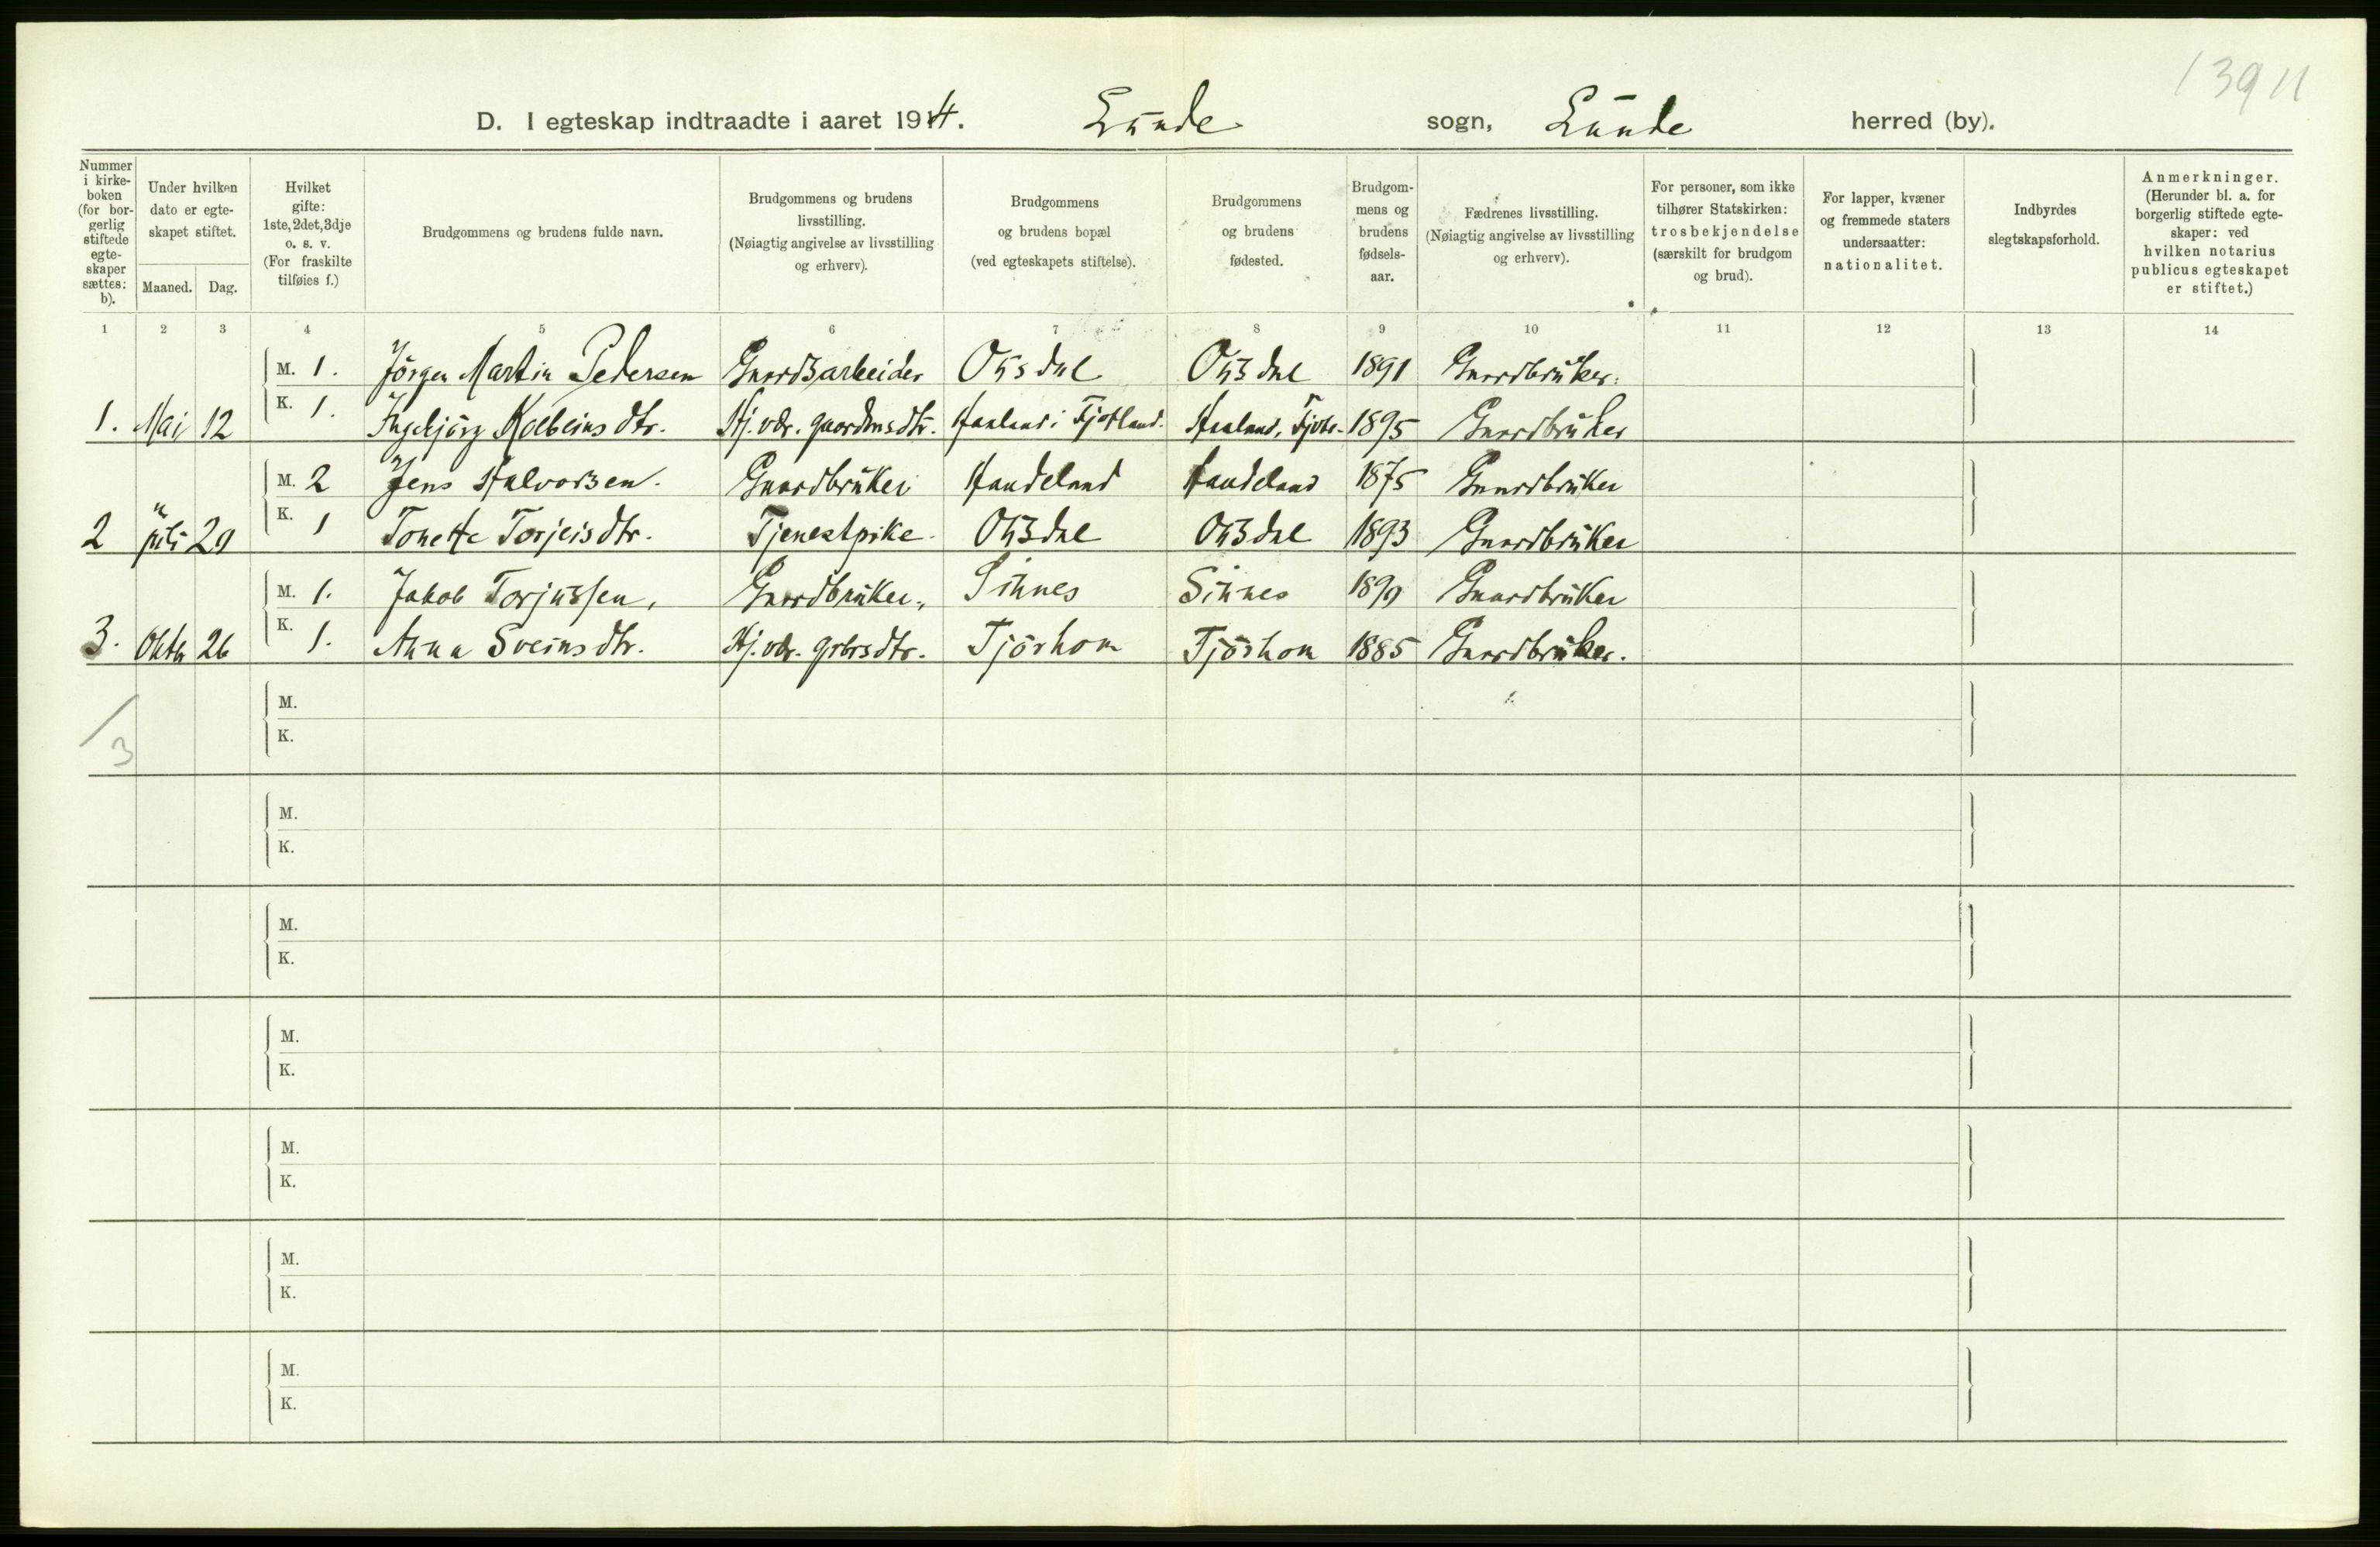 13911
D. I egteskap indtraadte i aaret 1914. Lunde sogn, Lunde herred (by).
Nummer i kirke-boken (for bor-gerlig stiftede egte-skaper sættes: b).
Under hvilken dato er egte-skapet stiftet.
Maaned. Dag.
Hvilket gifte: 1ste, 2det, 3dje o. s. v. (For fraskilte tilføies f.)
Brudgommens og brudens fulde navn.
Brudgommens og brudens livsstilling. (Nøiagtig angivelse av livsstilling og erhverv).
Brudgommens og brudens bopæl (ved egteskapets stiftelse).
Brudgommens og brudens fødested.
Brudgom-mens og brudens fødsels-aar.
Fædrenes livsstilling. (Nøiagtig angivelse av livsstilling og erhverv).
For personer, som ikke tilhører Statskirken: trosbekjendelse (særskilt for brudgom og brud).
For lapper, kvæner og fremmede staters undersaatter: nationalitet.
Indbyrdes slegtskapsforhold.
Anmerkninger. (Herunder bl. a. for borgerlig stiftede egte-skaper: ved hvilken notarius publicus egteskapet er stiftet.)
1 2 3 4 5 6 7 8 9 10 11 12 13 14
M. 1. Jörgen Martin Pedersen Gaardsarbeider Ousdal Ousdal 1891 Gaardbruker.
1. Mai 12 K. 1. Ingebjörg Kolbeins dtr. Hj. vær. gaardms dtr. Haaland i Fjotland. Haaland, Fjotl. 1895 Gaardbruker
M. 2 Jens Halvorsen. Gaardbruker Haudeland Haudeland 1875 Gaardbruker
2 juli 29 K. 1 Tonette Torjeis dtr. Tjenestpike. Ousdal Ousdal 1893 Gaardbruker
M. 1. Jakob Torjussen, Gaardbruker, Sinnes Sinnes 1890 Gaardbruker
3. Oktb 26 K. 1. Anna Sveins dtr. Hj. vær. grbrs dtr. Tjörhom Tjörhom 1885 Gaardbruker.
M.
K.
3
M.
K.
M.
K.
M.
K.
M.
K.
M.
K.
M.
K.